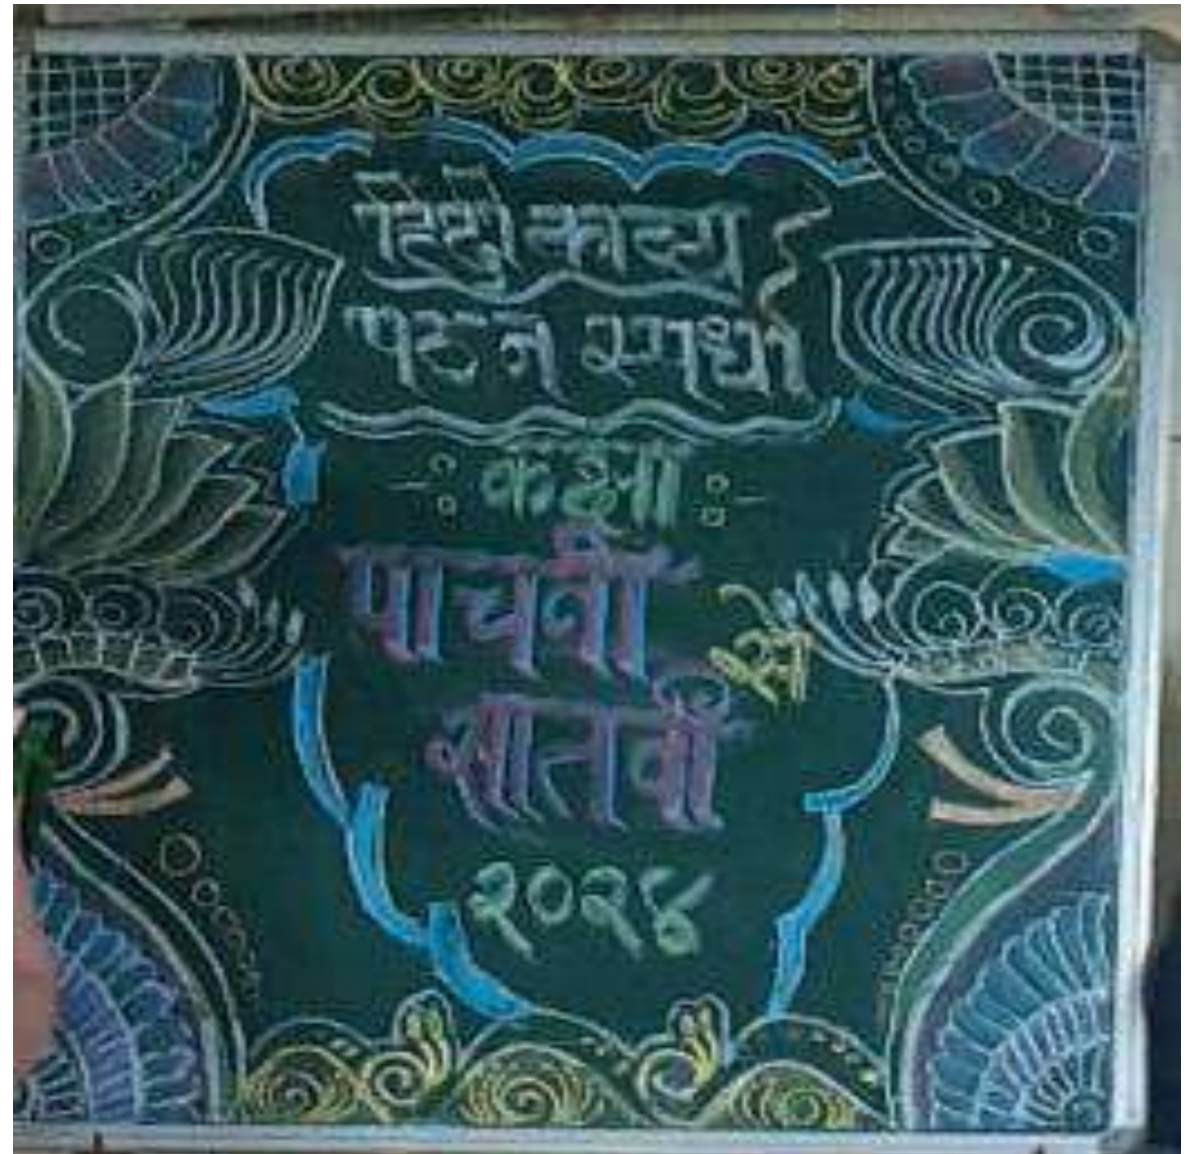 हिंदी काव्य
पठन स्पर्धा
कक्षा
पाचवी से
सातवीं
२०२४